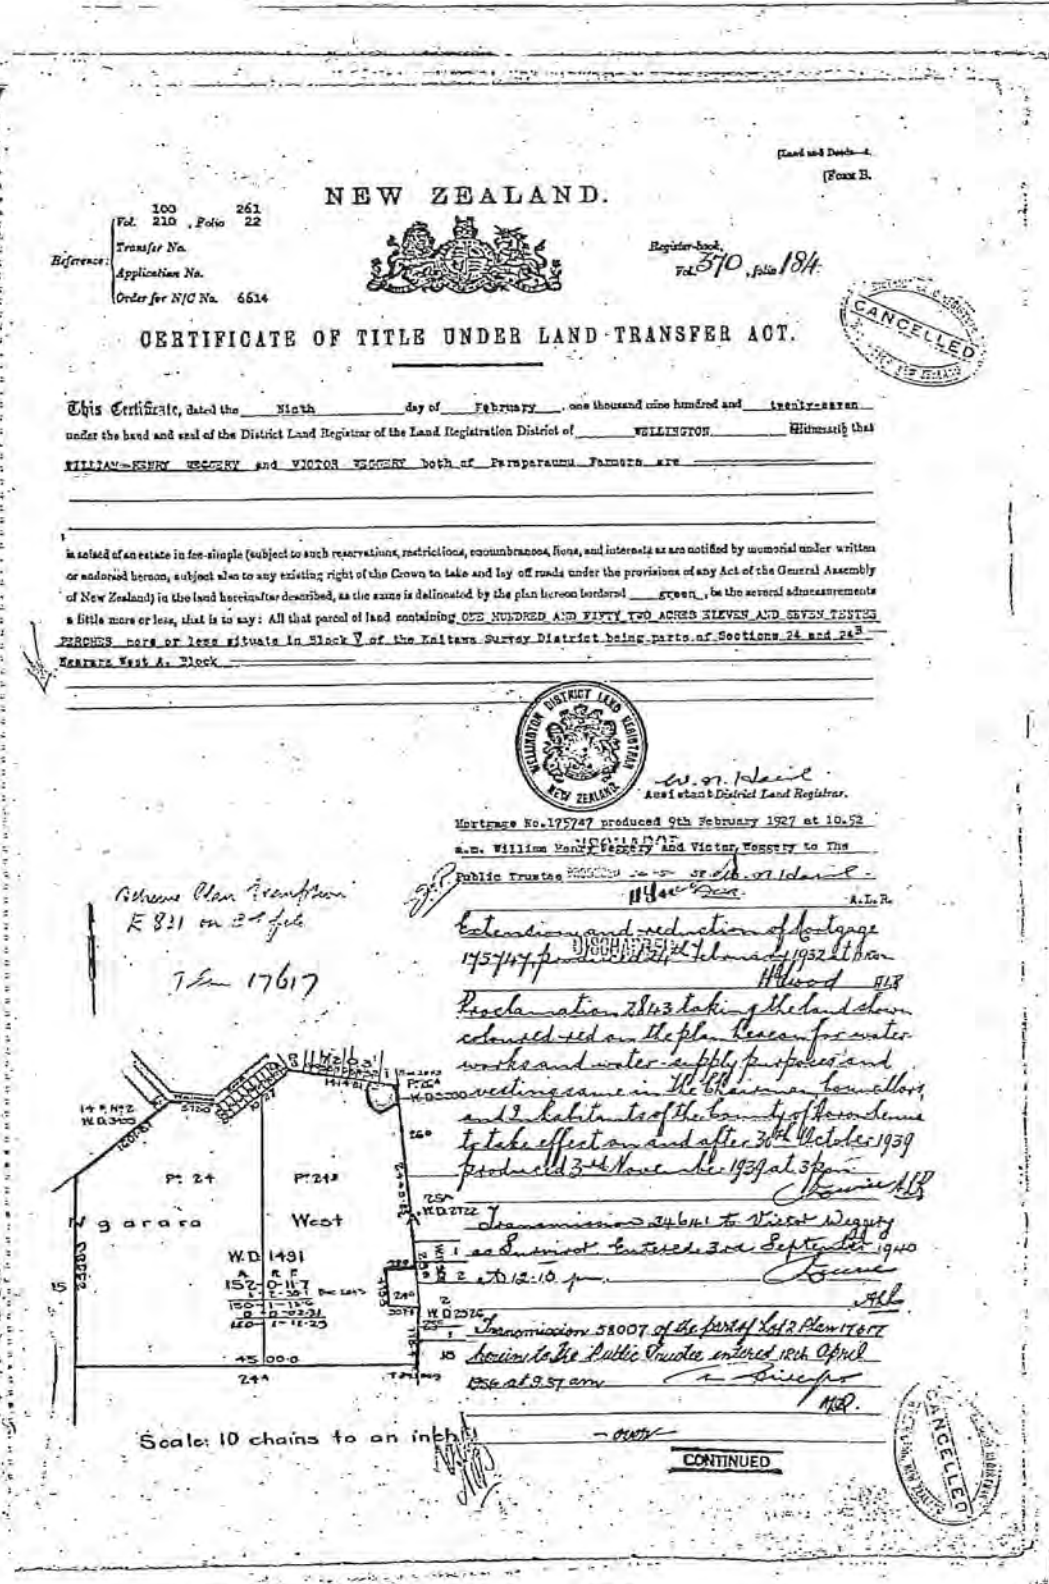 [Land and Deeds—4.
[FORM B.
NEW ZEALAND.
Reference:
100 261
Vol. 210 , Folio 22
Transfer No.
Application No.
Order for N/C No. 6614
Register-book,
Vol. 370 , folio 184
CERTIFICATE OF TITLE UNDER LAND TRANSFER ACT.
CANCELLED
This Certificate, dated the Ninth day of February , one thousand nine hundred and twenty-seven
under the hand and seal of the District Land Registrar of the Land Registration District of WELLINGTON Witnesseth that
WILLIAM HENRY WEGGERY and VICTOR WEGGERY both of Paraparaumu Farmers are
is seised of an estate in fee-simple (subject to such reservations, restrictions, encumbrances, liens, and interests as are notified by memorial under written
or endorsed hereon, subject also to any existing right of the Crown to take and lay off roads under the provisions of any Act of the General Assembly
of New Zealand) in the land hereinafter described, as the same is delineated by the plan hereon bordered green , be the several admeasurements
a little more or less, that is to say: All that parcel of land containing ONE HUNDRED AND FIFTY TWO ACRES ELEVEN AND SEVEN TENTHS
PERCHES more or less situate in Block V of the Kaitawa Survey District being parts of Sections 24 and 24B
Ngarara West A. Block
WELLINGTON DISTRICT LAND REGISTRAR
NEW ZEALAND
Assistant District Land Registrar.
Mortgage No.175747 produced 9th February 1927 at 10.52
a.m. William Henry Weggery and Victor Weggery to The
Public Trustee
A.L.R.
Extension and reduction of Mortgage
175747, produced 24th February 1932 at
DISCHARGED
ALR
Proclamation 2843 taking the land shown
coloured red on the plan hereon for water
works and water-supply purposes and
vesting same in The Chairman Councillors
and Inhabitants of the County of Horowhenua
to take effect on and after 30th October 1939
produced 3rd November 1939 at 3 pm
ALR
Transmission 24641 to Victor Weggery
as Survivor Entered 3rd September 1940
at 12.10 pm.
ALR
Transmission 58007 of the part of Lot 2 Plan 17617
herein to The Public Trustee entered 18th April
1956 at 9.37 am
ALR.
- over -
CONTINUED
Scheme Plan Exemption
E 821 on
17617
Pt 24
Pt 24B
Ngarara West
W.D. 1491
A R P
152-0-11.7
4500.0
24A
15
260
25A
W.D. 2722
W.D. 2526
Scale: 10 chains to an inch
CANCELLED